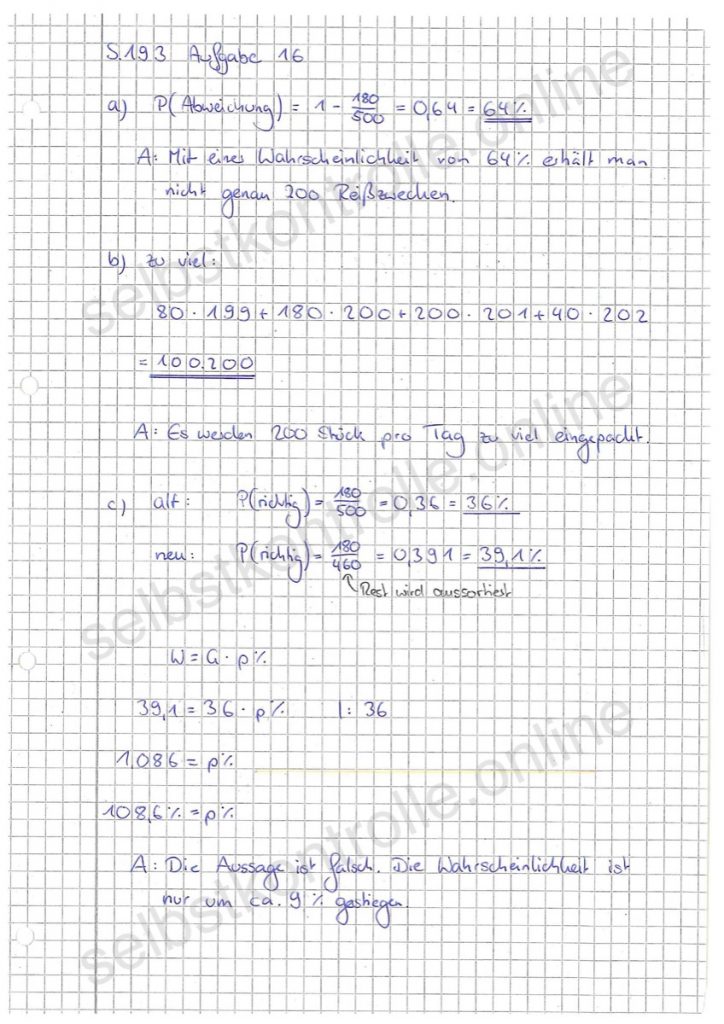 S.193 Aufgabe 16
a) P(Abweichung) = 1 - 180/500 = 0,64 = 64%
A: Mit einer Wahrscheinlichkeit von 64% erhält man
nicht genau 200 Reißzwecken.
b) zu viel:
80 · 199 + 180 · 200 + 200 · 201 + 40 · 202
= 100.200
A: Es werden 200 Stück pro Tag zu viel eingepackt.
c) alt: P(richtig) = 180/500 = 0,36 = 36%
neu: P(richtig) = 180/460 = 0,391 = 39,1%
Rest wird aussortiert
W = G · p%
39,1 = 36 · p% |: 36
1,086 = p%
108,6% = p%
A: Die Aussage ist falsch. Die Wahrscheinlichkeit ist
nur um ca. 9% gestiegen.
selbstkontrolle.online
selbstkontrolle.online
selbstkontrolle.online